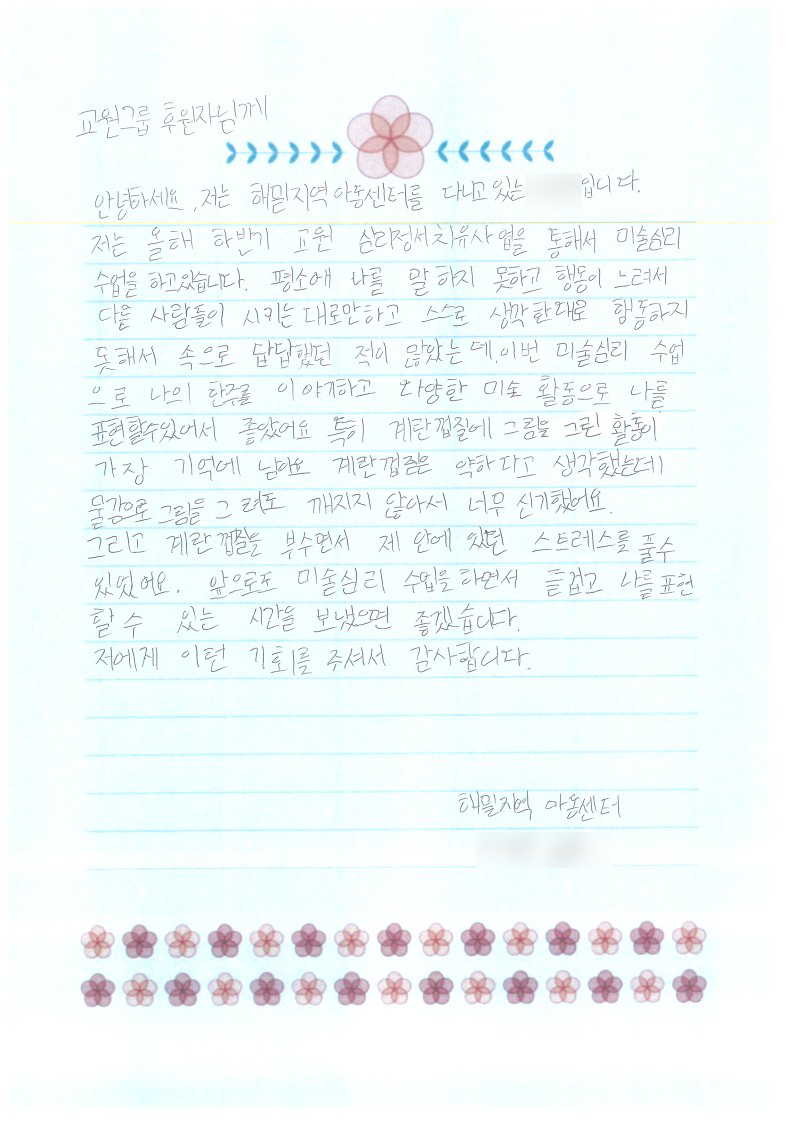 교원그룹 후원자님께
안녕하세요, 저는 해밀지역아동센터를 다니고 있는 입니다.
저는 올해 하반기 교원 심리정서치유사업을 통해서 미술심리
수업을 하고있습니다. 평소에 나를 말하지 못하고 행동이 느려서
다른 사람들이 시키는 대로만하고 스스로 생각한대로 행동하지
못해서 속으로 답답했던 적이 많았는데, 이번 미술심리 수업
으로 나의 한주를 이야기하고 다양한 미술 활동으로 나를
표현할수있어서 좋았어요 특히 계란껍질에 그림을 그린 활동이
가장 기억에 남아요 계란껍질은 약하다고 생각했는데
물감으로 그림을 그려도 깨지지 않아서 너무 신기했어요.
그리고 계란껍질을 부수면서 제 안에 있던 스트레스를 풀수
있었어요. 앞으로도 미술심리 수업을 하면서 즐겁고 나를 표현
할 수 있는 시간을 보냈으면 좋겠습니다.
저에게 이런 기회를 주셔서 감사합니다.
해밀지역 아동센터